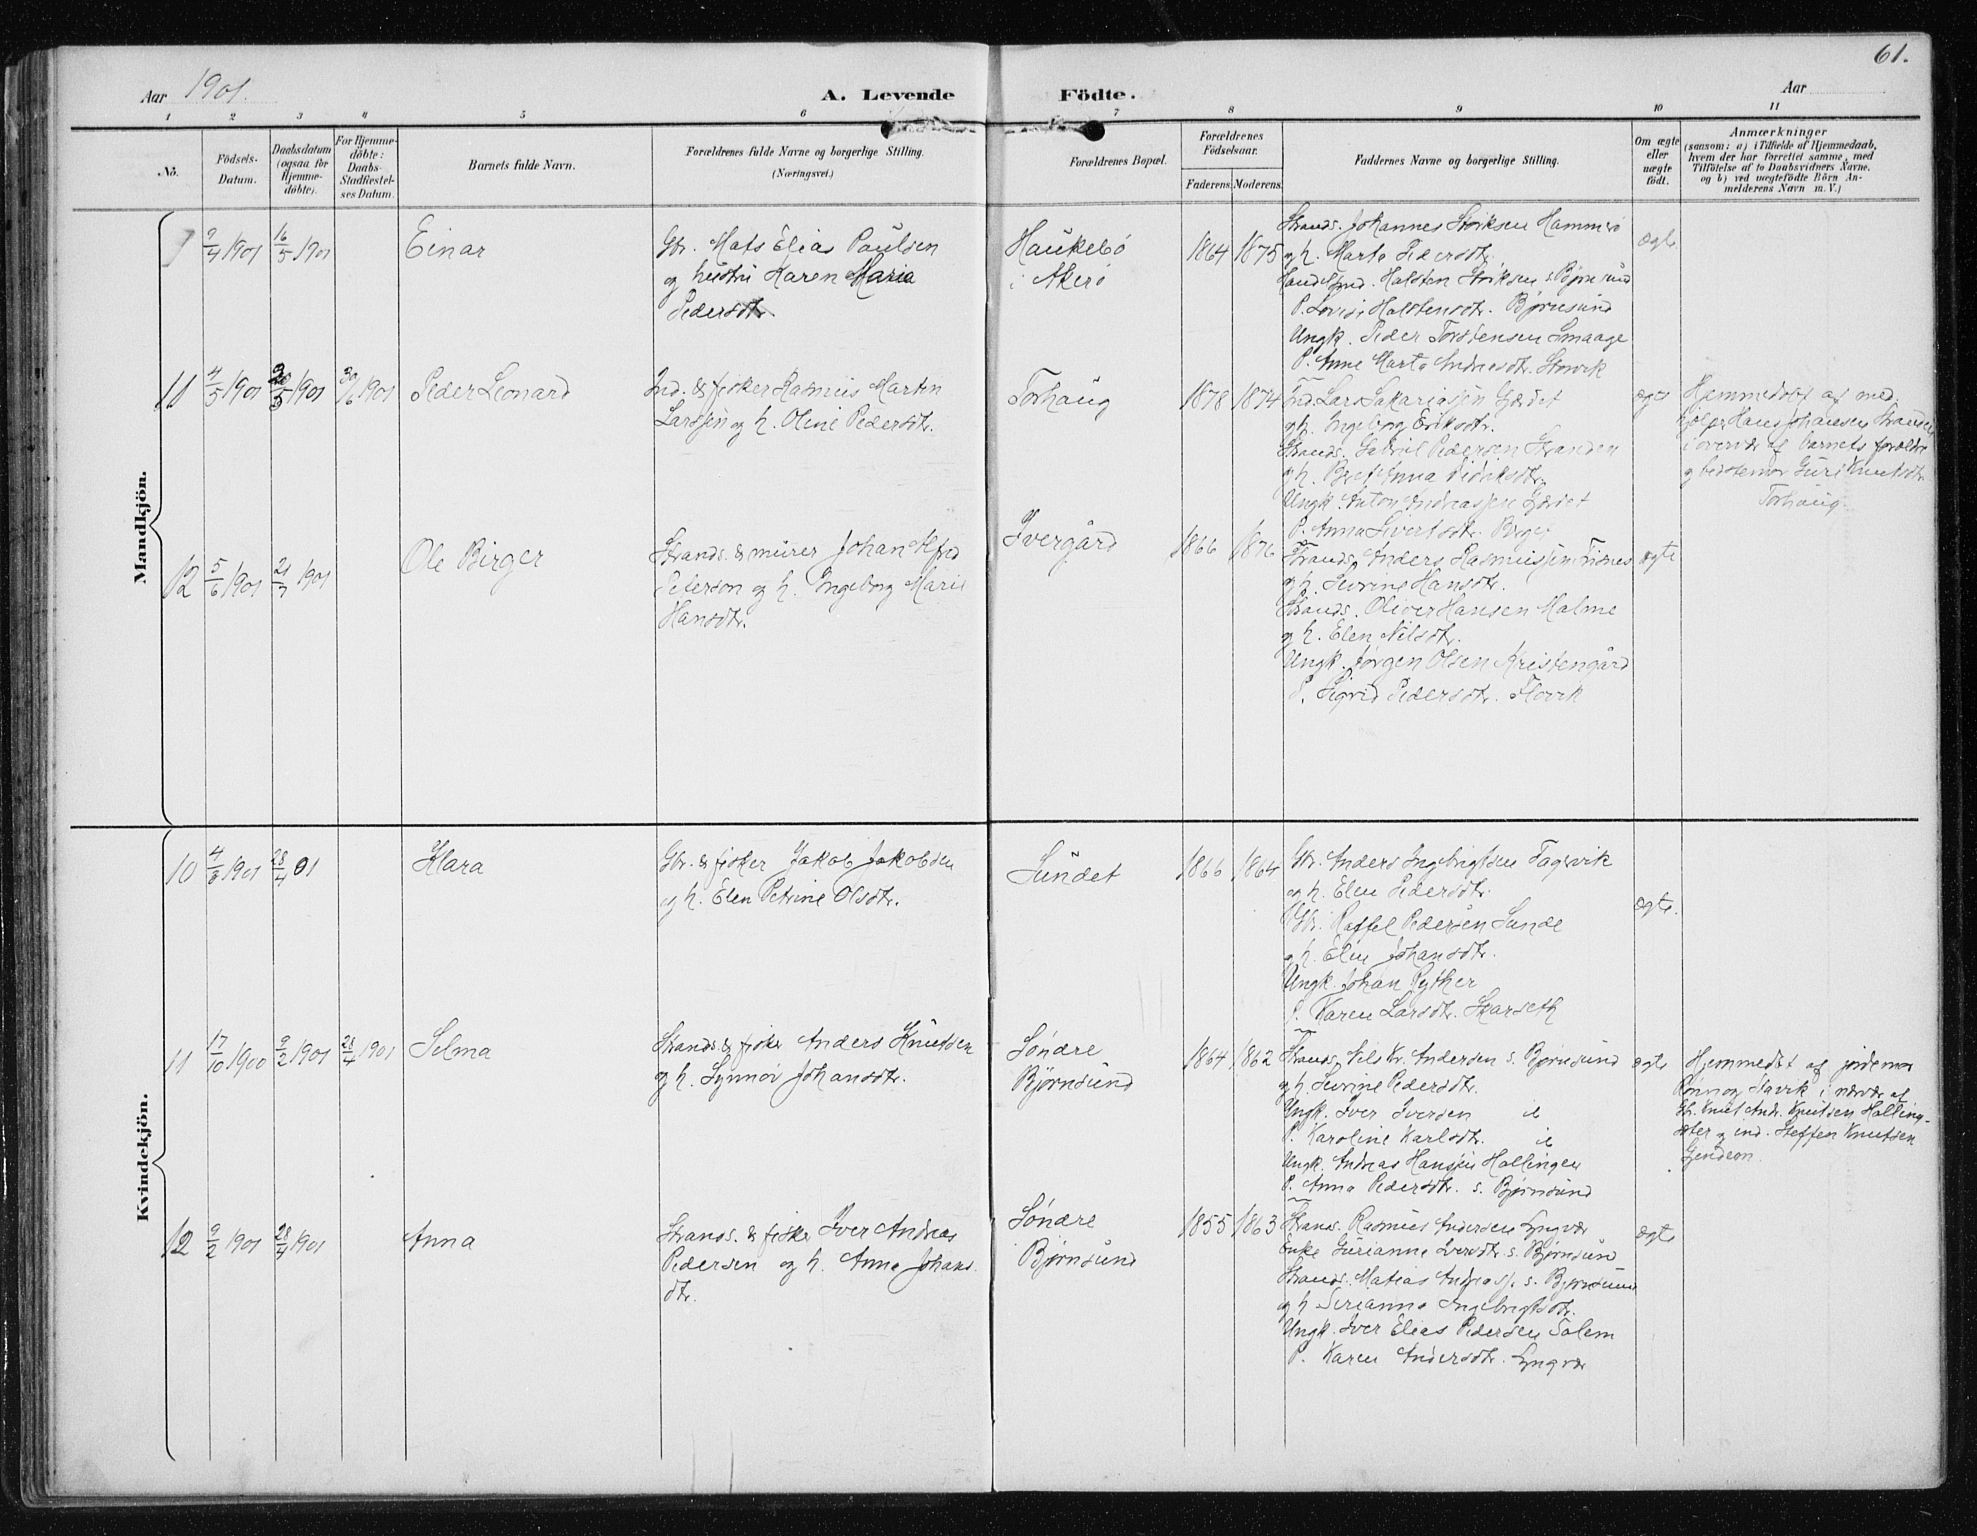 61.
Aar 1901.
A. Levende Födte.
Aar
1 2 3 4 5 6 7 8 9 10 11
No.
Födsels-
Datum.
Daabsdatum
(ogsaa for
Hjemme-
döbte).
For Hjemme-
döbte:
Daabs-
Stadfæstel-
ses Datum.
Barnets fulde Navn.
Forældrenes fulde Navne og borgerlige Stilling.
(Næringsvei.)
Forældrenes Bopæl.
Forældrenes
Födselsaar.
Faderens. Moderens.
Faddernes Navne og borgerlige Stilling.
Om ægte
eller
uægte
födt.
Anmærkninger
(saasom: a) i Tilfælde af Hjemmedaab,
hvem der har forrettet samme, med
Tilföielse af to Daabsvidners Navne.
og b) ved uægtefödte Börn An-
melderens Navn m. V.)
Mandkjön.
9/4 1901 16/5 1901
Einar
Gbr. Mats Elias Paulsen
og hustru Karen Maria
Pedersdtr.
Haukebø
i Akerø
1864 1875
Strands. Johannes Hammerø
og h. Marta Pedersdtr.
Halsten s. Bjørnsund
P. Lovise Halstensdtr. Bjørnsund
Ungk. Peder Torstensen Smaage
P. Anne Marta Andreasdtr. Storvik
ægte.
11 4/5 1901 1901 30/6 1901
Peder Leonard
Ind. & fisker Rasmus Martin
Larssen og h. Oline Pedersdtr.
Torhaug
1878 1874
Ind. Lars Sakariassen Gjerdet
og h. Ingeborg Eriksdtr.
Strands. Gabriel Pedersen Stranden
og h. Anna Didriksdtr.
Ungk. Anton Andreassen Gjerdet
P. Anna Sivertsdtr.
ægte
Hjemmedøbt af med-
hjelper Hans Johansen
i overvær af barnets forældre
og bedstemor Guri Knutsdtr.
Torhaug.
12 5/6 1901 21/7 1901
Ole Birger
Strands. & murer Johan Alfred
Peterson og h. Ingeborg Marie
Hansdtr.
Ivergård
1866 1876
Strands. Anders Rasmussen
og h. Severine Hansdtr.
Strands. Oliver Hansen Malme
og h. Elen Nilsdtr.
Ungk. Jørgen Olsen Kristengård
P. Sigrid Pedersdtr. Flovik
ægte
Kvindekjön.
10 4/3 1901 28/4 01
Klara
Gbr. & fisker Jakob Jakobsen
og h. Elen Petrine Olsdtr.
Sundet
1866 1864
Gbr. Anders Ingebrigtsen Tagvik
og h. Elen Pedersdtr.
Gbr. Raffel Pedersen Sunde
og h. Elen Johansdtr.
Ungk. Johan Rytter
P. Karen Larsdtr. Skarseth
ægte.
11 17/10 1900 9/2 1901 28/4 1901
Selma
Strands & fisker Anders Knutsen
og h. Synnøv Johansdtr.
Søndre
Bjørnsund
1864 1862
Strands. Nils Kr. Andersen s. Bjørnsund
og h. Severine Pedersdtr.
Ungk. Iver Iversen
P. Karoline Karlsdtr.
Ungk. Andreas Hansen Hollingen
P. Anna Pedersdtr. s. Bjørnsund
ægte
Hjemmedøbt af jordemor
i nærvær af
Gbr. Knut Andr. Knutsen Holling-
og ind. Steffen Knutsen
12 9/2 1901 28/4 1901
Anna
Strands. & fisker Iver Andreas
Pedersen og h. Anna Johans-
dtr.
Søndre
Bjørnsund
1855 1863
Strands. Rasmus Andersen Lyngvær
Enke Gurianna Iversdtr s. Bjørnsund
Strands. Matias s. Bjørnsund
og h Serianna Ingebrigtsdtr.
Ungk. Iver Elias Pedersen Solem
P. Karen Andersdtr. Lyngvær
ægte